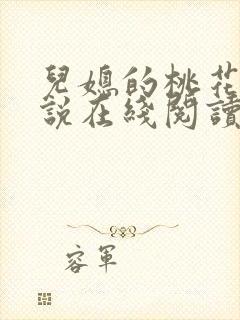 兒媳的桃花
說在綫閱讀
容軍